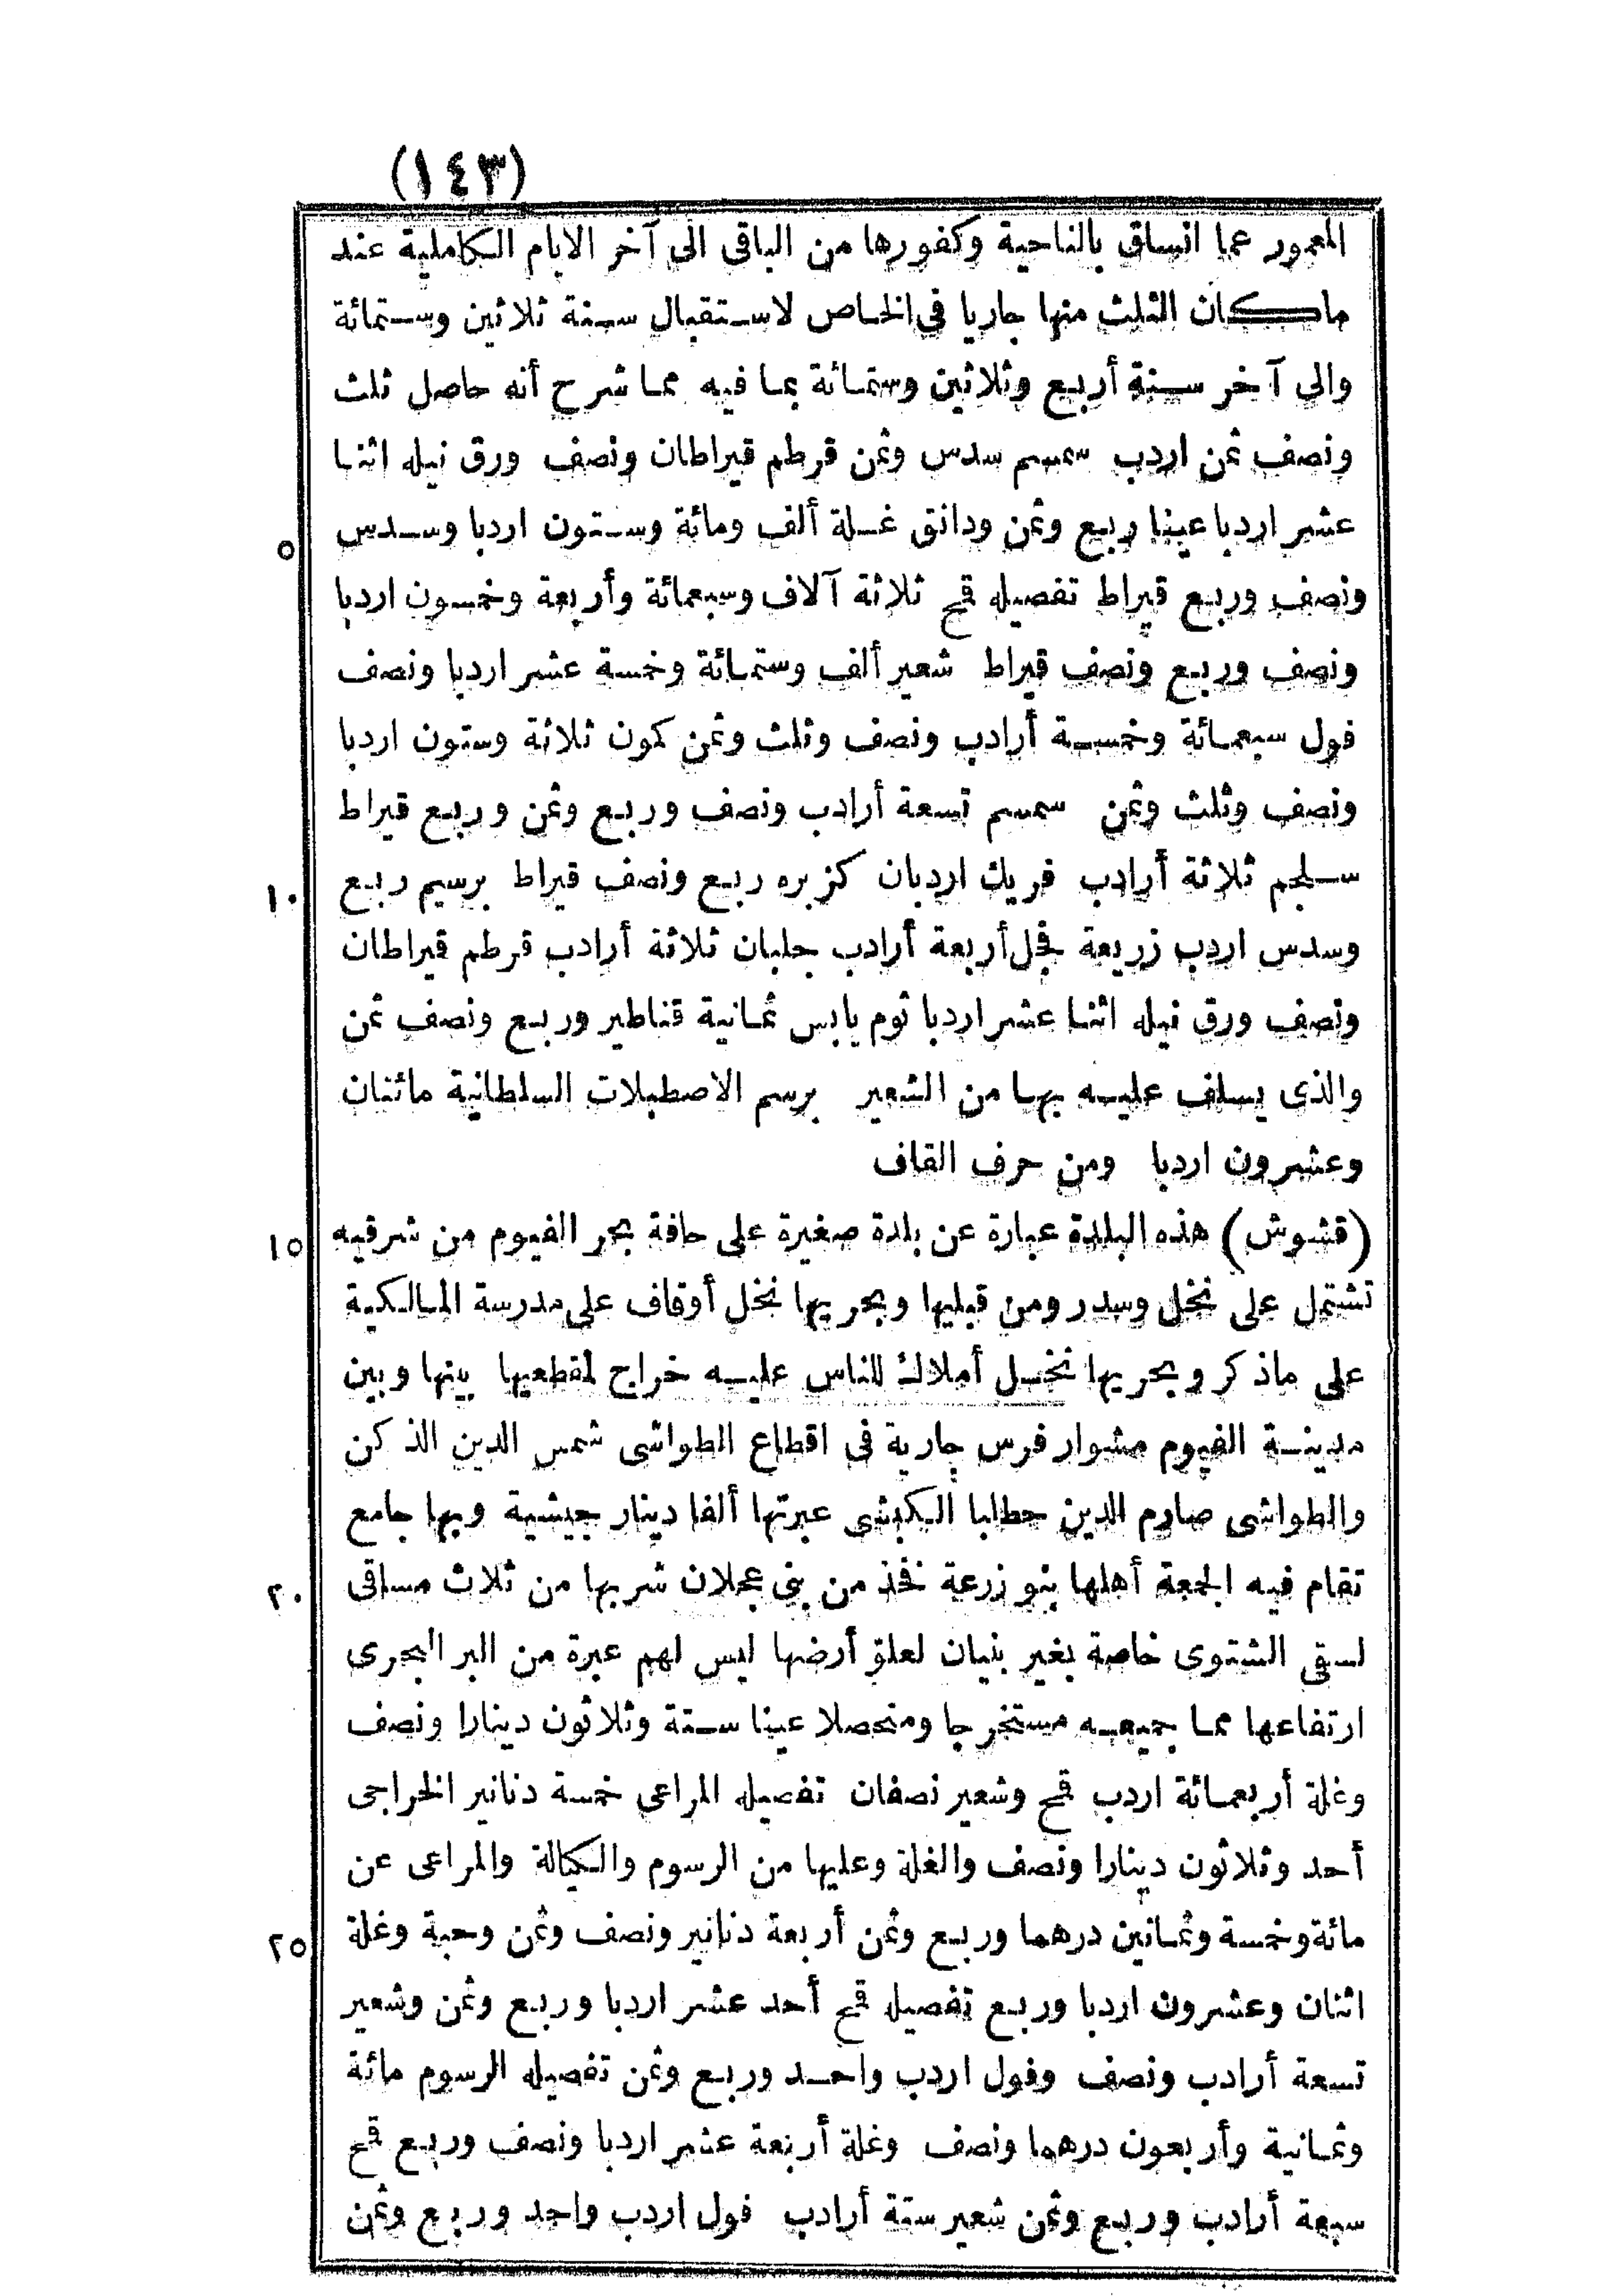 (١٤٣)
المعمور عما انساق بالناحية وكفورها من الباقى الى آخر الايام الكاملية عند
ما كان الثلث منها جاريا فى الخاص لاستقبال سنة ثلاثين وستمائة
والى آخر سنة أربع وثلاثين وستمائة بما فيه مما شرح أنه حاصل ثلث
ونصف ثمن اردب سمسم سدس وثمن قرطم قيراطان ونصف ورق نيله اثنا
عشر اردبا عينا ربع وثمن ودانق غلة ألف ومائة وستون اردبا وسدس
٥
ونصف وربع قيراط تفصيله قمح ثلاثة آلاف وسبعمائة وأربعة وخمسون اردبا
ونصف وربع ونصف قيراط شعير ألف وستمائة وخمسة عشر اردبا ونصف
فول سبعمائة وخمسة أرادب ونصف وثلث وثمن كمون ثلاثة وستون اردبا
ونصف وثلث وثمن سمسم تسعة أرادب ونصف وربع وثمن وربع قيراط
سلجم ثلاثة أرادب فريك اردبان كزبره ربع ونصف قيراط برسيم ربع
١٠
وسدس اردب زريعة فجل أربعة أرادب جلبان ثلاثة أرادب قرطم قيراطان
ونصف ورق نيله اثنا عشر اردبا ثوم يابس ثمانية قناطير وربع ونصف ثمن
والذى يسلف عليه بها من الشعير برسم الاصطبلات السلطانية مائتان
وعشرون اردبا ومن حرف القاف
(قشوش) هذه البلدة عبارة عن بلدة صغيرة على حافة بحر الفيوم من شرقيه
١٥
تشتمل على نخل وسدر ومن قبليها وبحريها نخل أوقاف على مدرسة المالكية
على ماذكر وبحريها نخل أملاك للناس عليه خراج لمقطعيها بينها وبين
مدينة الفيوم مشوار فرس جارية فى اقطاع الطواشى شمس الدين الذكن
والطواشى صارم الدين حطلبا الكبشى عبرتها ألفا دينار جيشية وبها جامع
تقام فيه الجمعة أهلها بنو زرعة فخذ من بنى عجلان شربها من ثلاث مساقى
٢٠
لسقى الشتوى خاصة بغير بنيان لعلوّ أرضها ليس لهم عبرة من البر البحرى
ارتفاعها مما جميعه مستخرجا ومتحصلا عينا ستة وثلاثون دينارا ونصف
وغلة أربعمائة اردب قمح وشعير نصفان تفصيله المراعى خمسة دنانير الخراجى
أحد وثلاثون دينارا ونصف والغلة وعليها من الرسوم والكيالة والمراعى عن
مائة وخمسة وثمانين درهما وربع وثمن أربعة دنانير ونصف وثمن وحبة وغلة
٢٥
اثنان وعشرون اردبا وربع تفصيل قمح أحد عشر اردبا وربع وثمن وشعير
تسعة أرادب ونصف وفول اردب واحد وربع وثمن تفصيله الرسوم مائة
وثمانية وأربعون درهما ونصف وغلة أربعة عشر اردبا ونصف وربع قمح
سبعة أرادب وربع وثمن شعير ستة أرادب فول اردب واحد وربع وثمن